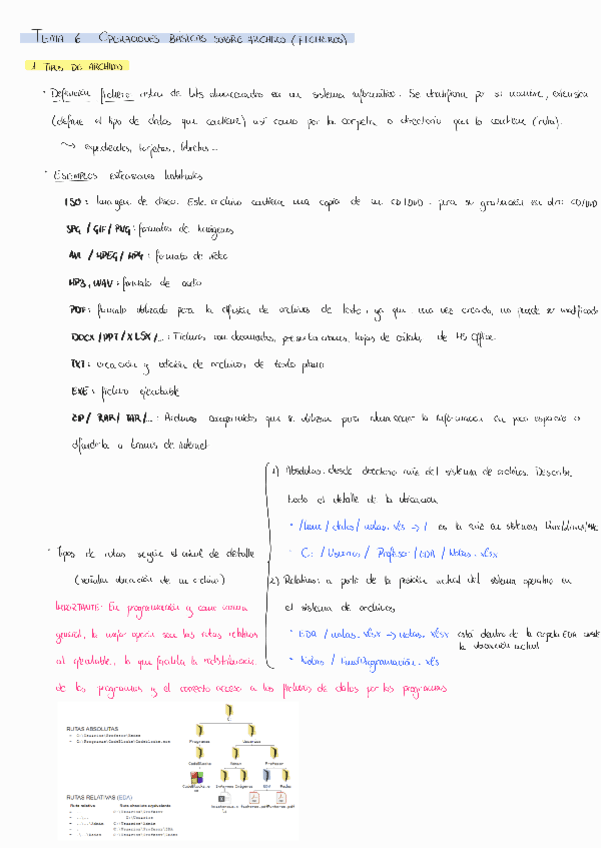 TEMA 6 OPERACIONES BÁSICAS SOBRE ARCHIVO (FICHEROS)
1. TIPOS DE ARCHIVO
· Definición fichero: de bits almacenados en un sistema informático. Se identifican por su nombre, extensión
(define el tipo de datos que contiene) así como por la carpeta o directorio que lo contiene (ruta).
expedientes, tarjetas, libretas...
· EJEMPLOS extensiones habituales
ISO: Imagen de disco. Este archivo contiene una copia de un CD/DVD para su grabación en otro CD/DVD
JPG / GIF / PNG: formatos de imágenes
AVI / MPEG / MP4: formato de vídeo
MP3, WAV: formato de audio
PDF: formato utilizado para la difusión de archivos de texto, ya que una vez creado, no puede ser modificado
DOCX / PPT / XLSX /...: Ficheros con documentos, presentaciones, hojas de cálculo de MS Office.
TXT: creación y edición de archivos de texto plano
EXE: fichero ejecutable
ZIP / RAR / TAR /...: Archivos comprimidos que se utilizan para almacenar la información en poco espacio o
difundirla a través de internet
1) Absolutas: desde directorio raíz del sistema de archivos. Describe
todo el detalle de la ubicación
· /home / datos / notas.xls → / es la raíz en sistemas Linux/
· C: / Usuarios / Profesor / EDA / Notas.xlsx
· Tipos de rutas según el nivel de detalle
(señalan ubicación de un archivo)
2) Relativas: a partir de la posición actual del sistema operativo en
el sistema de archivos
· EDA / notas.xlsx → notas.xlsx está dentro de la carpeta EDA desde
la ubicación actual
· Notas / FinalProgramación.xls
IMPORTANTE: En programación y como norma
general, la mejor opción son las rutas relativas
al ejecutable, lo que facilita la redistribución
de los programas y el correcto acceso a los ficheros de datos por los programas
RUTAS ABSOLUTAS
RUTAS RELATIVAS (EDA)
Ruta relativa Ruta absoluta equivalente
C:
Programas Usuarios
CodeBlocks Profesor
Informes Imágenes EDA